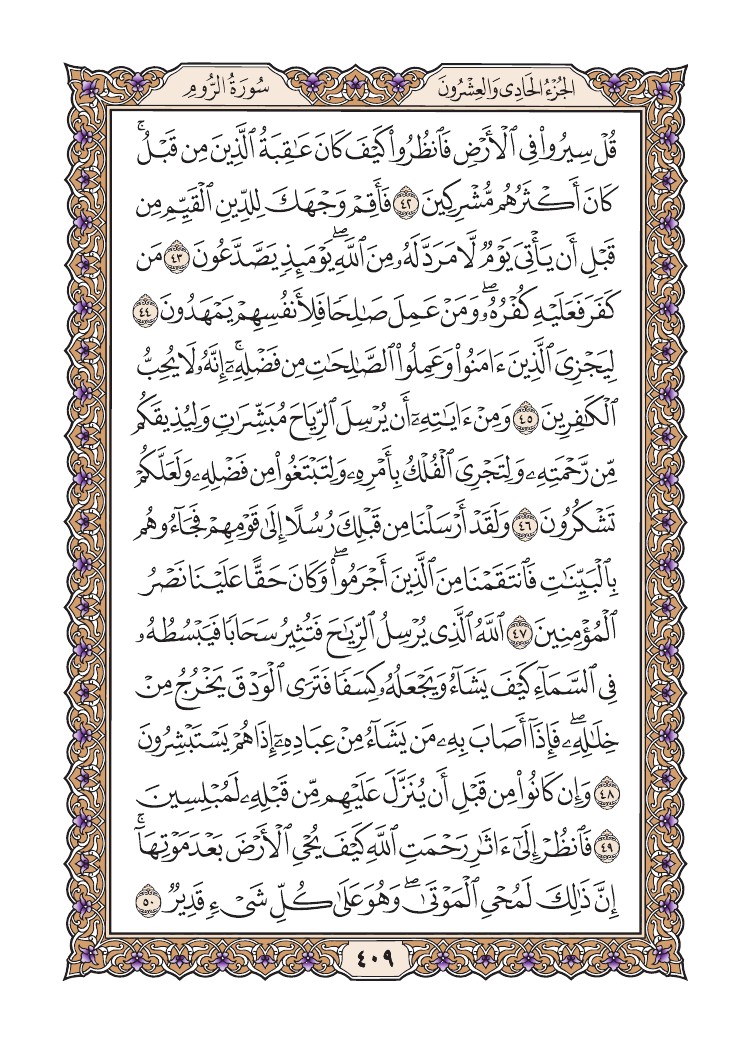 الجُزْءُ الحَادِى وَالعِشْرُونَ
سُورَةُ الرُّومِ
قُلْ سِيرُوا۟ فِى ٱلْأَرْضِ فَٱنظُرُوا۟ كَيْفَ كَانَ عَـٰقِبَةُ ٱلَّذِينَ مِن قَبْلُ ۚ
كَانَ أَكْثَرُهُم مُّشْرِكِينَ ٤٢ فَأَقِمْ وَجْهَكَ لِلدِّينِ ٱلْقَيِّمِ مِن
قَبْلِ أَن يَأْتِىَ يَوْمٌ لَّا مَرَدَّ لَهُۥ مِنَ ٱللَّهِ ۖ يَوْمَئِذٍ يَصَّدَّعُونَ ٤٣ مَن
كَفَرَ فَعَلَيْهِ كُفْرُهُۥ ۖ وَمَنْ عَمِلَ صَـٰلِحًا فَلِأَنفُسِهِمْ يَمْهَدُونَ ٤٤
لِيَجْزِىَ ٱلَّذِينَ ءَامَنُوا۟ وَعَمِلُوا۟ ٱلصَّـٰلِحَـٰتِ مِن فَضْلِهِۦٓ ۚ إِنَّهُۥ لَا يُحِبُّ
ٱلْكَـٰفِرِينَ ٤٥ وَمِنْ ءَايَـٰتِهِۦٓ أَن يُرْسِلَ ٱلرِّيَاحَ مُبَشِّرَٰتٍ وَلِيُذِيقَكُم
مِّن رَّحْمَتِهِۦ وَلِتَجْرِىَ ٱلْفُلْكُ بِأَمْرِهِۦ وَلِتَبْتَغُوا۟ مِن فَضْلِهِۦ وَلَعَلَّكُمْ
تَشْكُرُونَ ٤٦ وَلَقَدْ أَرْسَلْنَا مِن قَبْلِكَ رُسُلًا إِلَىٰ قَوْمِهِمْ فَجَآءُوهُم
بِٱلْبَيِّنَـٰتِ فَٱنتَقَمْنَا مِنَ ٱلَّذِينَ أَجْرَمُوا۟ ۖ وَكَانَ حَقًّا عَلَيْنَا نَصْرُ
ٱلْمُؤْمِنِينَ ٤٧ ٱللَّهُ ٱلَّذِى يُرْسِلُ ٱلرِّيَـٰحَ فَتُثِيرُ سَحَابًا فَيَبْسُطُهُۥ
فِى ٱلسَّمَآءِ كَيْفَ يَشَآءُ وَيَجْعَلُهُۥ كِسَفًا فَتَرَى ٱلْوَدْقَ يَخْرُجُ مِنْ
خِلَـٰلِهِۦ ۖ فَإِذَآ أَصَابَ بِهِۦ مَن يَشَآءُ مِنْ عِبَادِهِۦٓ إِذَا هُمْ يَسْتَبْشِرُونَ
٤٨ وَإِن كَانُوا۟ مِن قَبْلِ أَن يُنَزَّلَ عَلَيْهِم مِّن قَبْلِهِۦ لَمُبْلِسِينَ
٤٩ فَٱنظُرْ إِلَىٰٓ ءَاثَـٰرِ رَحْمَتِ ٱللَّهِ كَيْفَ يُحْىِ ٱلْأَرْضَ بَعْدَ مَوْتِهَآ ۚ
إِنَّ ذَٰلِكَ لَمُحْىِ ٱلْمَوْتَىٰ ۖ وَهُوَ عَلَىٰ كُلِّ شَىْءٍ قَدِيرٌ ٥٠
٤٠٩